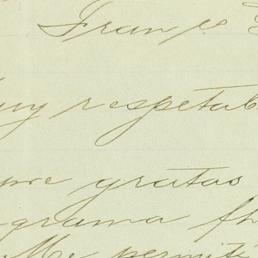 Fran
uy respetab
gratas
grama
Me permiti